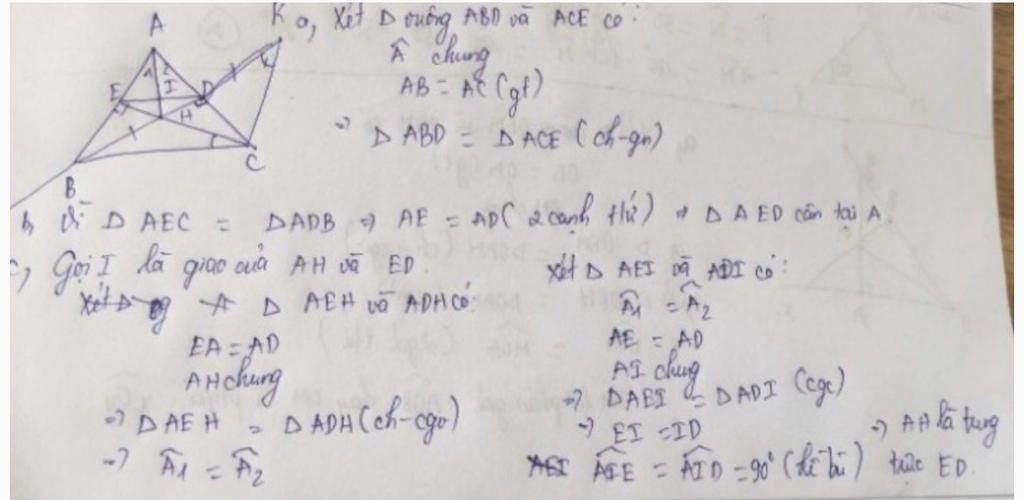 A
K
E
1 2
I
D
H
B
C
a, Xét Δ vuông ABD và ACE có:
Â chung
AB = AC (gt)
⇒ Δ ABD = Δ ACE (ch-gn)
b, Vì Δ AEC = Δ ADB ⇒ AE = AD (2 cạnh t/ứ) ⇒ Δ AED cân tại A
c, Gọi I là giao của AH và ED.
Xét Δ AEH và ADH có:
EA = AD
AH chung
⇒ Δ AEH = Δ ADH (ch-cgv)
⇒ Â1 = Â2
Xét Δ AEI và ADI có:
Â1 = Â2
AE = AD
AI chung
⇒ Δ AEI = Δ ADI (cgc)
⇒ EI = ID
AIE = AID = 90° (kề bù)
⇒ AH là trung
trực ED.